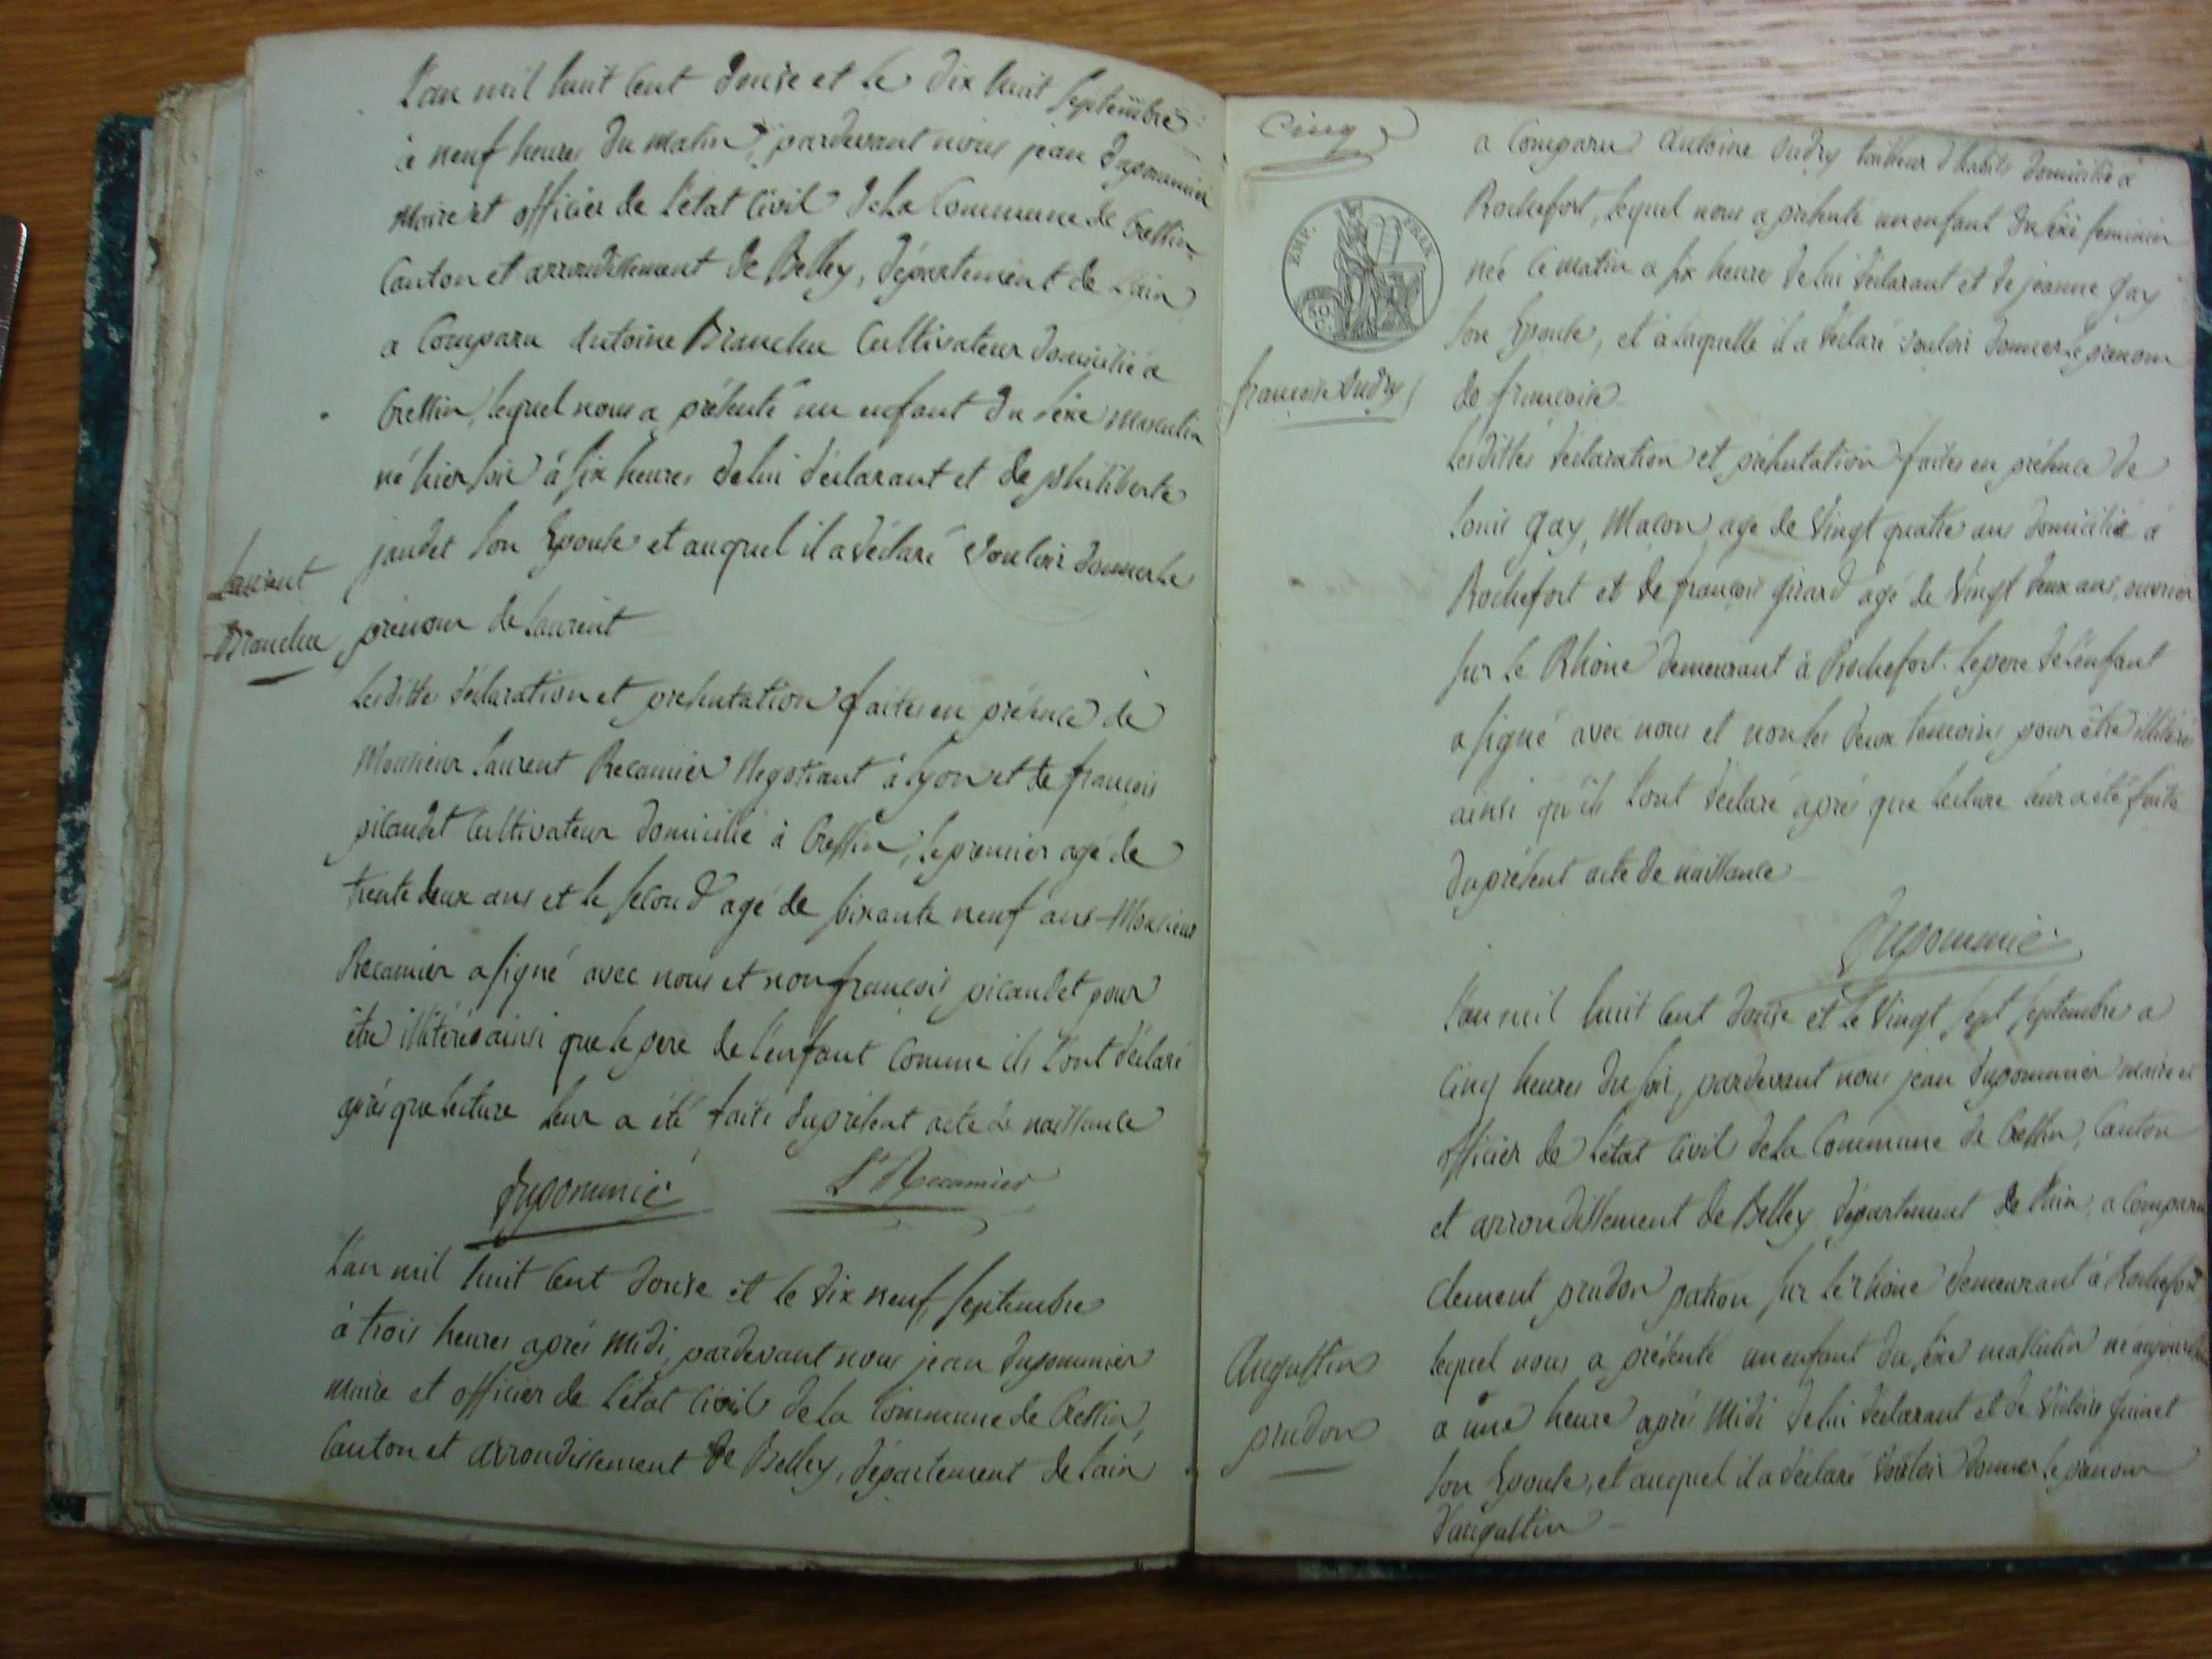 L'an mil huit cent douse et le dix huit septembre
à neuf heures du matin, pardevant nous jean dupommier
Maire et officier de l'état civil de la Commune de Cressin
Canton et arrondissement de Belley, département de l'ain
a Comparu Antoine Branchu Cultivateur domicilié à
Cressin, lequel nous a présenté un enfant du sexe masculin
né hier soir à six heures de lui déclarant et de philiberte
jaudet son Epouse et auquel il a déclaré vouloir donner le
Laurent
Branchu
prénom de Laurent
Lesdittes déclaration et présentation faites en présence de
Monsieur Laurent Recamier Negotiant à Lyon et de françois
picaudet Cultivateur domicilié à Cressin, le premier agé de
trente deux ans et le second agé de soixante neuf ans Monsieur
Recamier a signé avec nous et non françois picaudet pour
être illitéré ainsi que le pere de l'enfant Comme ils l'ont déclaré
après que lecture leur a été faite du présent acte de naissance
Dupommié Lt Recamier
L'an mil huit cent douse et le dix neuf septembre
à trois heures après midi, pardevant nous jean dupommier
maire et officier de l'état civil de la Commune de Cressin,
Canton et arrondissement de Belley, département de l'ain
Cinq
EMP. FRAN.
50 C.
françoise Sudry
a Comparu Antoine Sudry tailleur d'habits domicilié à
Rochefort, lequel nous a présenté un enfant du sexe feminin
née ce matin a six heures de lui déclarant et de jeanne gay
son Epouse, et à laquelle il a déclaré vouloir donner le prénom
de françoise
Lesdittes déclaration et présentation faites en présence de
Louis gay, Macon agé de vingt quatre ans domicilié à
Rochefort et de françois girard agé de vingt deux ans, ouvrier
sur le Rhône demeurant à Rochefort. le pere de l'enfant
a signé avec nous et non les deux temoins pour être illitérés
ainsi qu'ils l'ont déclaré après que lecture leur a été faite
du présent acte de naissance
Dupommié
L'an mil huit cent douse et le vingt sept septembre a
cinq heures du soir, pardevant nous jean dupommier maire et
officier de l'état civil de la Commune de Cressin, Canton
et arrondissement de Belley département de l'ain, a Comparu
clement prudon patron sur le rhône demeurant à Rochefort
Augustin
prudon
lequel nous a présenté un enfant du sexe masculin né aujourdhui
a une heure après Midi de lui déclarant et de Victoire guinet
son Epouse, et auquel il a déclaré vouloir donner le prénom
d'augustin